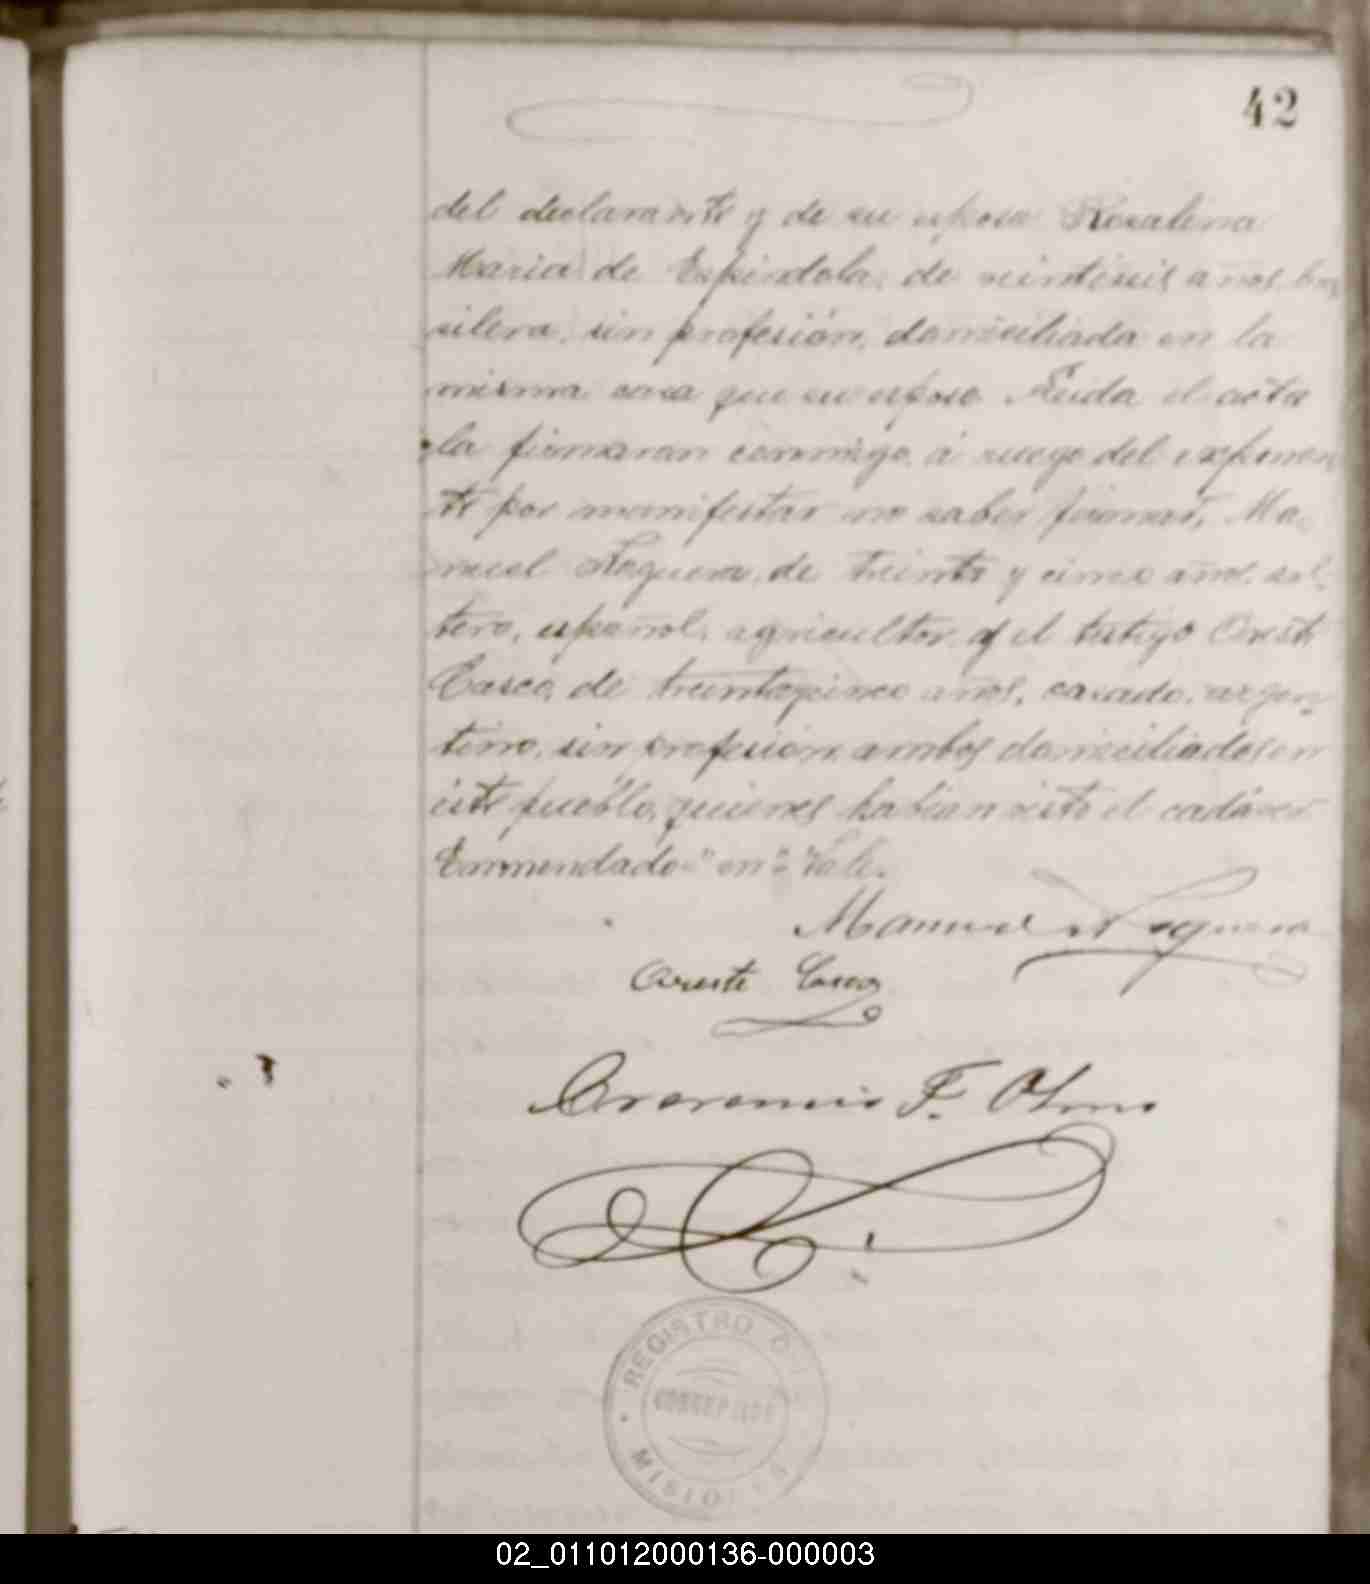 42
del declarante y de su esposa Rosalina
Maria de Espindola, de veintiseis años, bra
silera, sin profesión, domiciliada en la
misma casa que su esposo. Leida el acta
la firmaran conmigo, á ruego del exponen
te por manifestar no saber firmar, Ma-
nuel Noguera, de treinta y cinco años, sol-
tero, español, agricultor y el testigo Oreste
Casco, de treintaycinco años, casado, argen-
tino, sin profesion, ambos domiciliados en
éste pueblo, quienes habian visto el cadáver
Enmendado "en" Vale.
Manuel Noguera
Oreste Casco
F. Olmo
REGISTRO
CONCEPCION
MISIONES
02_011012000136-000003